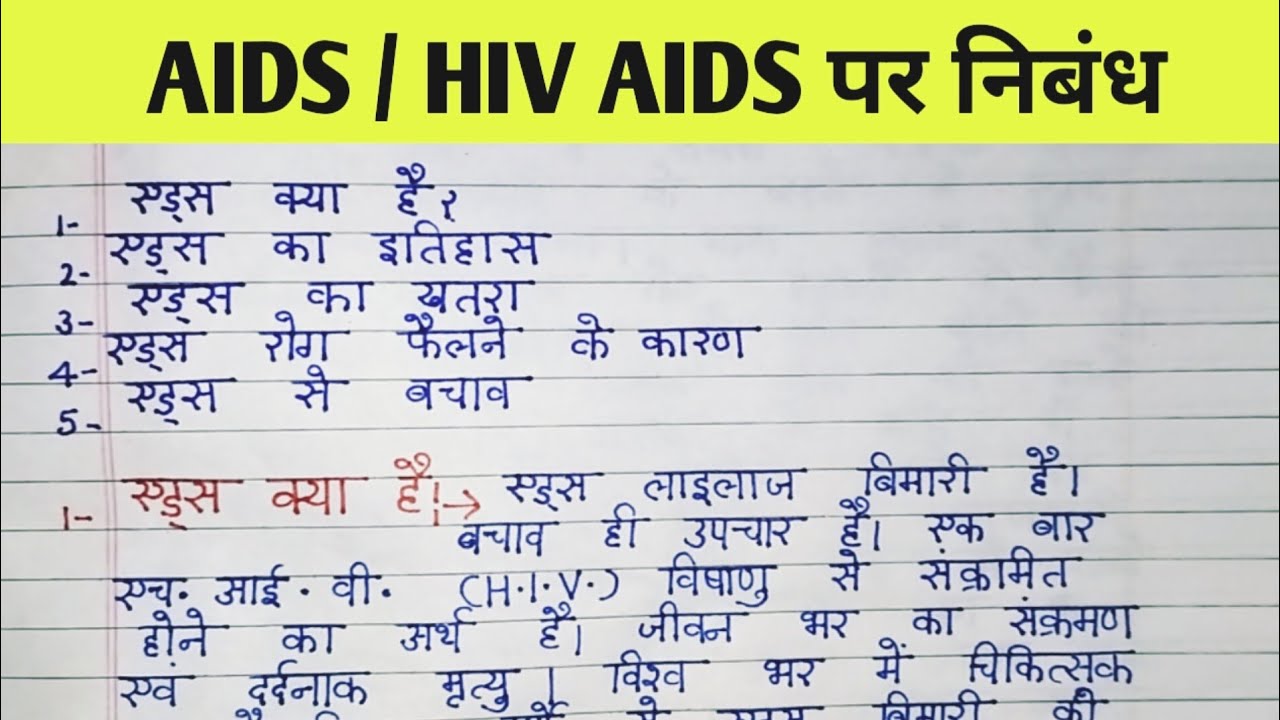 AIDS / HIV AIDS पर निबंध
1- एड्स क्या है?
2- एड्स का इतिहास
3- एड्स का खतरा
4- एड्स रोग फैलने के कारण
5- एड्स से बचाव
1- एड्स क्या है!→ एड्स लाइलाज बिमारी है।
बचाव ही उपचार है। एक बार
एच. आई. वी. (H.I.V.) विषाणु से संक्रामित
होने का अर्थ है। जीवन भर का संक्रमण
एवं दर्दनाक मृत्यु। विश्व भर में चिकित्सक
बिमारी की